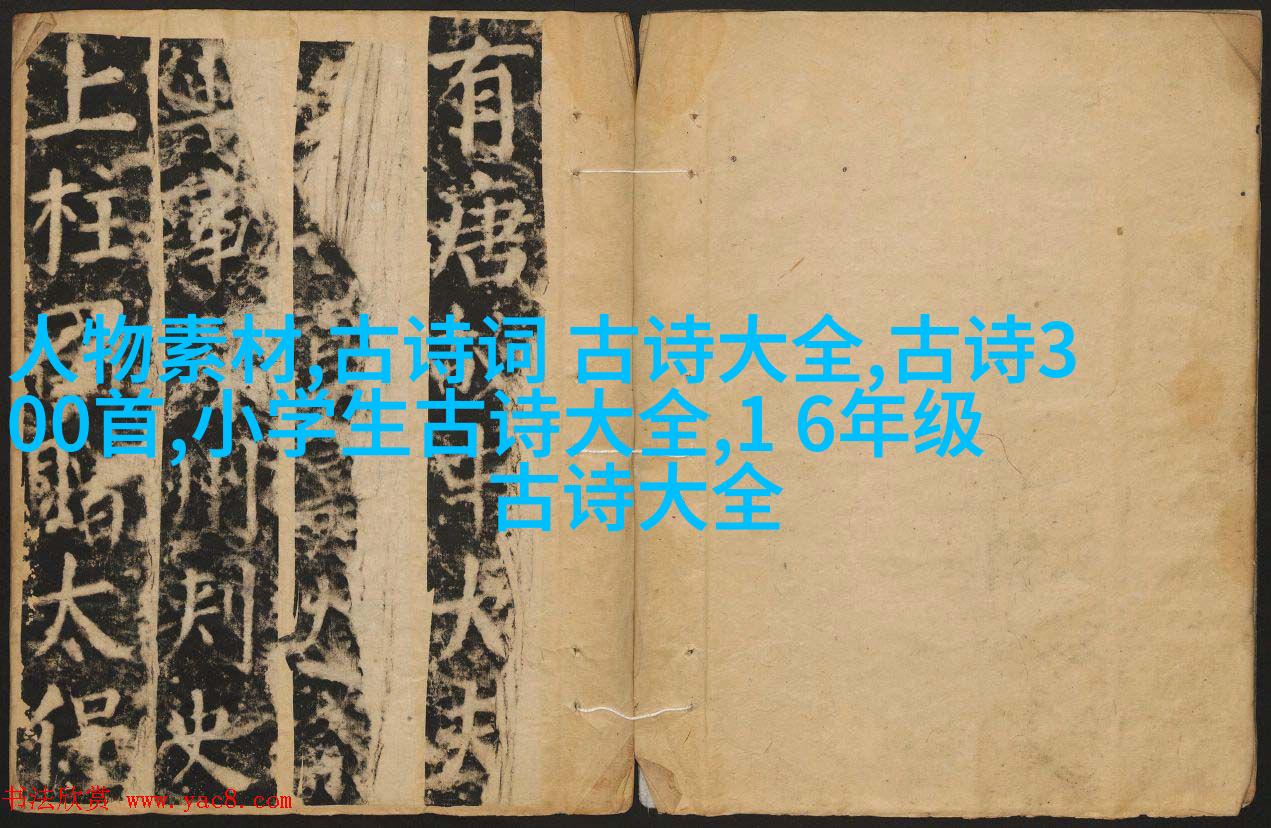 人物素材,古诗词 古诗大全,古诗3
00首,小学生古诗大全,1 6年级
古诗大全
有唐故中大夫
軍州刺史
上柱國贈太保
书法欣赏 www.yac8.com